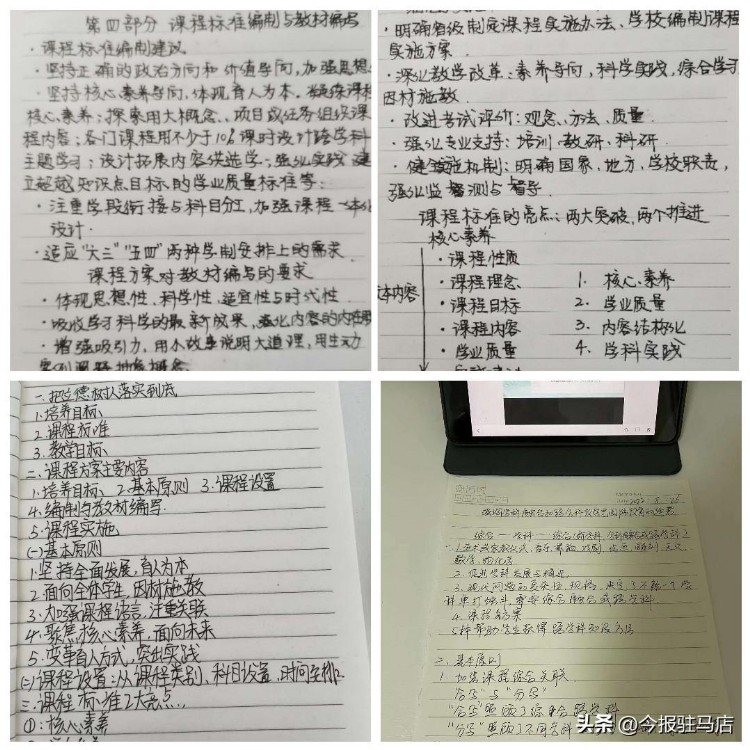 第四部分 课程标准编制与教材编写
·课程标准编制建议
·坚持正确的政治方向和价值导向,加强思想
·坚持核心素养导向,体现育人为本。凝练课
核心素养;探索用大概念、项目或任务组织课
程内容;各门课程用不少于10%课时设计跨学科
主题学习;设计拓展内容供选学;强化实践 建
立超越知识点目标的学业质量标准等;
·注重学段衔接与科目分工,加强课程一体化
设计.
·适应“六三”“五四”两种学制安排上的需求
课程方案对教材编写的要求
·体现思想性、科学性、适宜性与时代性
·吸收学习科学的最新成果,强化内容的内在联
·增强吸引力,用小故事说明大道理,用生动
案例阐释抽象概念
·明确省级制定课程实施办法、学校编制课程
实施方案
·深化教学改革:素养导向,科学实践,综合学习
因材施教
·改进考试评价:观念、方法、质量
·强化专业支持:培训、教研、科研
·健全实施机制:明确国家、地方、学校职责,
强化监测与督导
课程标准的亮点:两大突破,两个推进
核心素养
体内容
·课程性质
·课程理念 1. 核心素养
·课程目标 2. 学业质量
·课程内容 3. 内容结构化
·学业质量 4. 学科实践
一.把立德树人落实到底
1.培养目标
2.课程标准
3.教学目标
二.课程方案主要内容
1.培养目标 2.基本原则 3.课程设置
4.编制与教材编写
5.课程实施
(一)基本原则
1.坚持全面发展,育人为本
2.面向全体学生,因材施教
3.加强课程综合,注重关联
4.聚焦核心素养,面向未来
5.变革育人方式,突出实践
(二)课程设置:从课程类别,科目设置,时间安排..
三.课程标准2大亮点...
①:核心素养
4.课程综合
5.帮助学生获得跨学科知识与方法
二. 基本原则
1. 加强课程综合关联
“合写”与“分写”
头条 @今报驻马店